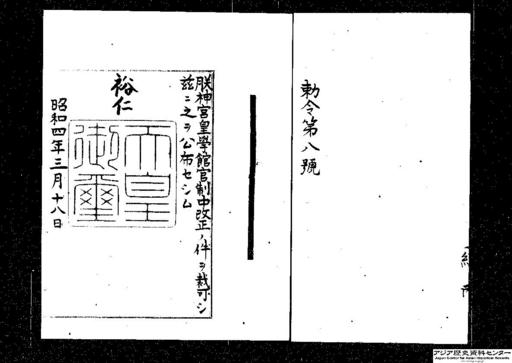 勅令第八號
朕神宮皇學館官制中改正ノ件ヲ裁可シ
茲ニ之ヲ公布セシム
裕仁
天皇
御璽
昭和四年三月十八日
アジア歴史資料センター
Japan Center for Asian Historical Records